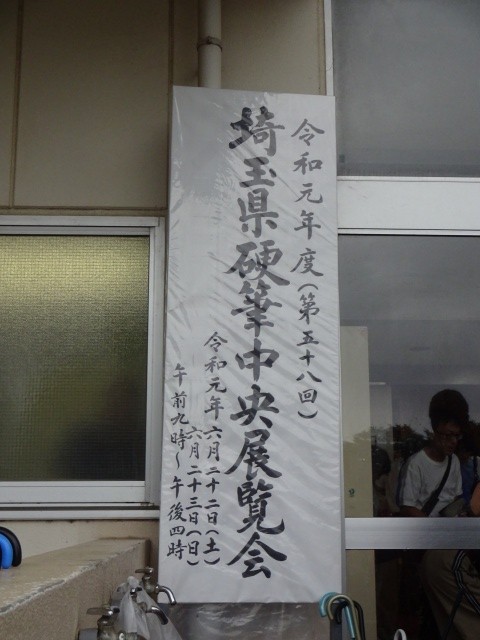 令和元年度(第五十八回)
埼玉県硬筆中央展覧会
令和元年 六月二十二日(土)
六月二十三日(日)
午前九時～午後四時